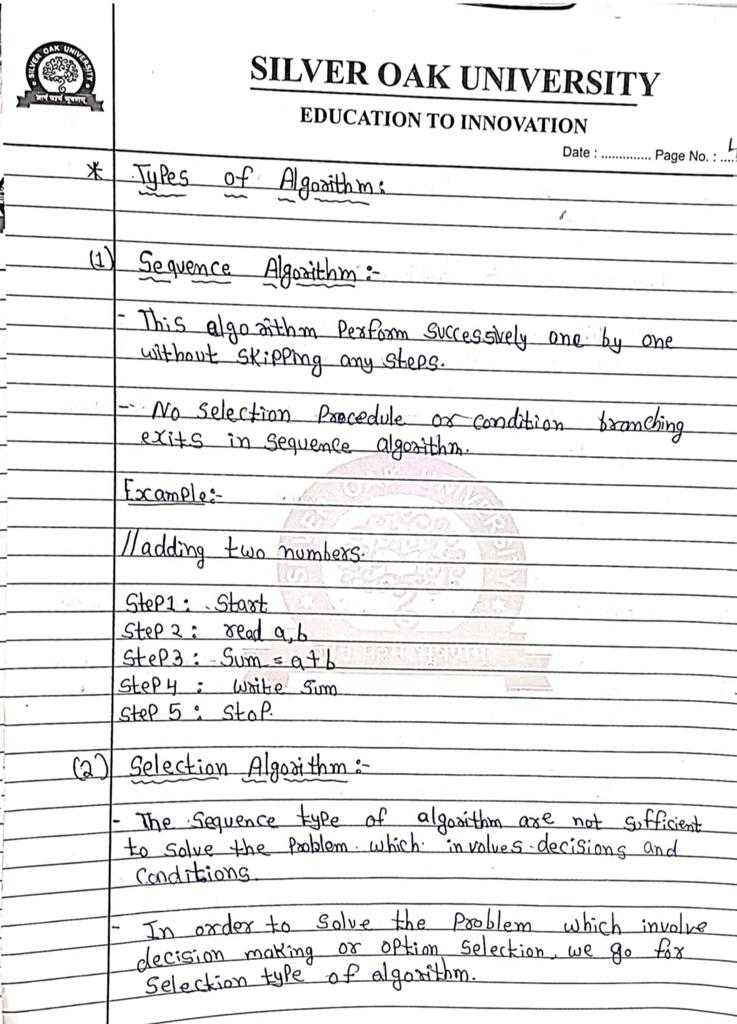 SILVER OAK UNIVERSITY
SILVER OAK UNIVERSITY
EDUCATION TO INNOVATION
Date : .............. Page No. : .... 4
* Types of Algorithm:
(1) Sequence Algorithm :-
- This algorithm Perform Successively one by one
without skipping any steps.
- No selection Procedule or condition branching
exits in sequence algorithm.
Example:-
//adding two numbers.
Step1 : Start
Step 2 : read a,b
Step3 : Sum = a+b
Step 4 : write sum
Step 5 : Stop.
(2) Selection Algorithm :-
- The Sequence type of algorithm are not sufficient
to solve the Problem which involves decisions and
Conditions.
- In order to solve the Problem which involve
decision making or option selection, we go for
Selection type of algorithm.